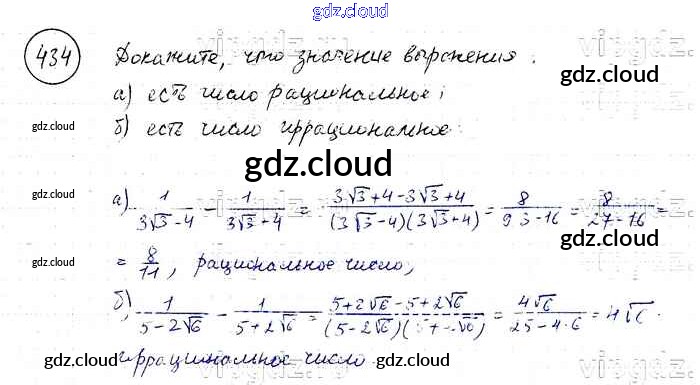 gdz.cloud
434 Докажите, что значение выражения:
gdz.cloud
а) есть число рациональное;
gdz.cloud
б) есть число иррациональное.
gdz.cloud
gdz.cloud
gdz.cloud
а) 1/(3√3-4) - 1/(3√3+4) = (3√3+4-3√3+4)/((3√3-4)(3√3+4)) = 8/(9·3-16) = 8/(27-16) =
gdz.cloud
gdz.cloud
= 8/11, рациональное число;
б) 1/(5-2√6) - 1/(5+2√6) = (5+2√6-5+2√6)/((5-2√6)(5+2√6)) = 4√6/(25-4·6) = 4√6.
иррациональное число.
gdz.cloud
gdz.cloud
gdz.cloud